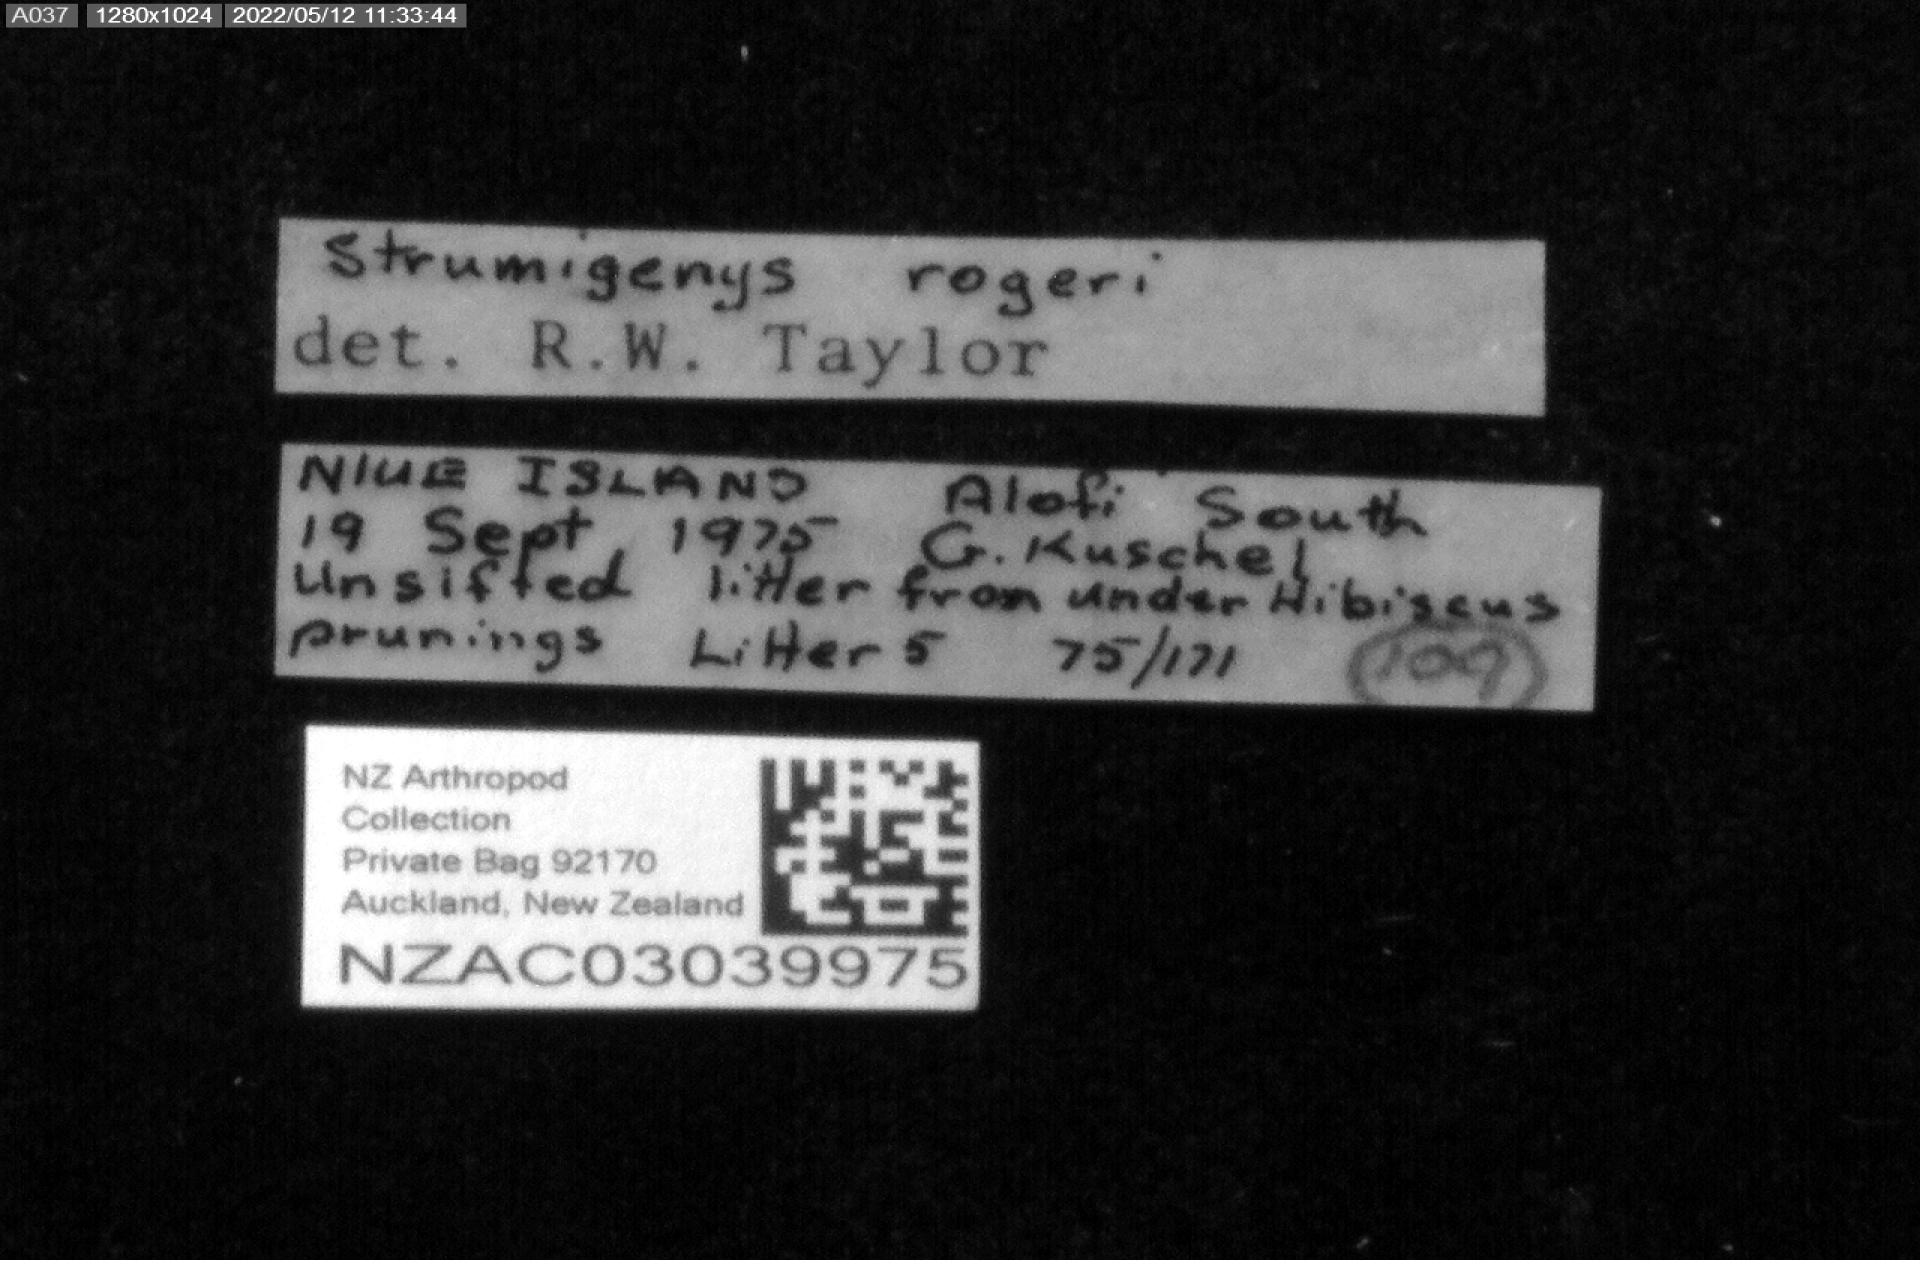 A037 1280x1024 2022/05/12 11:33:44
Strumigenys rogeri
det. R.W. Taylor
NIUE ISLAND Alofi South
19 Sept 1975 G. Kuschel
Unsifted litter from under Hibiscus
prunings Litter 5 75/171 109
NZ Arthropod
Collection
Private Bag 92170
Auckland, New Zealand
NZAC03039975